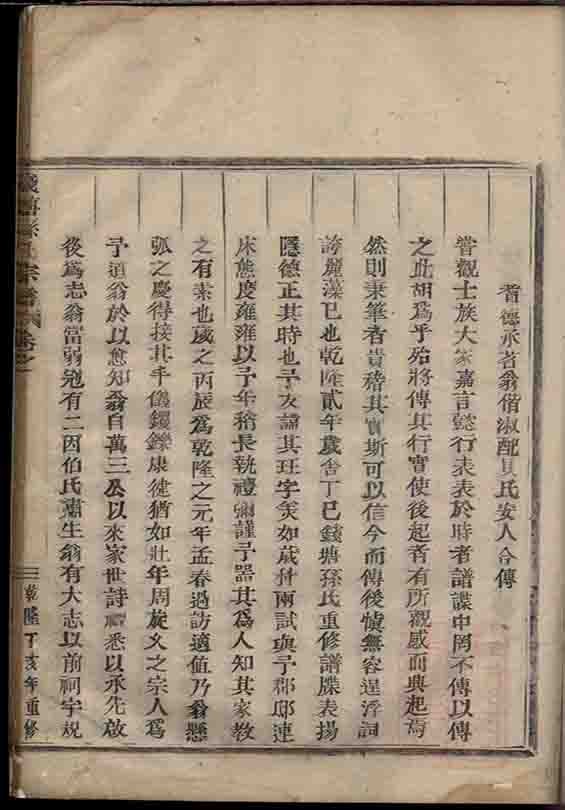 耆德承者翁偕淑配貝氏安人合傳
嘗觀士族大家嘉言懿行表表於時者譜諜中罔不傳以傳
之此胡爲乎殆將傳其行實使後起者有所觀感而興起焉
然則秉筆者貴稽其實斯可以信今而傳後慎無容逞浮詞
誇麗藻已也乾隆貳年歲舍丁巳錢塘孫氏重修譜牒表揚
隱德正其時也予友諱其玨字
如歲
兩試與予郡邸連
床態度雍雍以予年稍長執禮彌謹予器其爲人知其家教
之有素也歲之丙辰爲乾隆之元年孟春過訪適值乃翁懸
弧之慶得接其丰儀钁鑠康健猶如壯年周旋久之宗人爲
予道翁於以愈知翁自萬三公以來家世詩禮悉以承先啟
後爲志翁當弱冠有二因伯氏肅生翁有大志以前祠宇規
宗譜
卷之
乾隆丁亥年重修